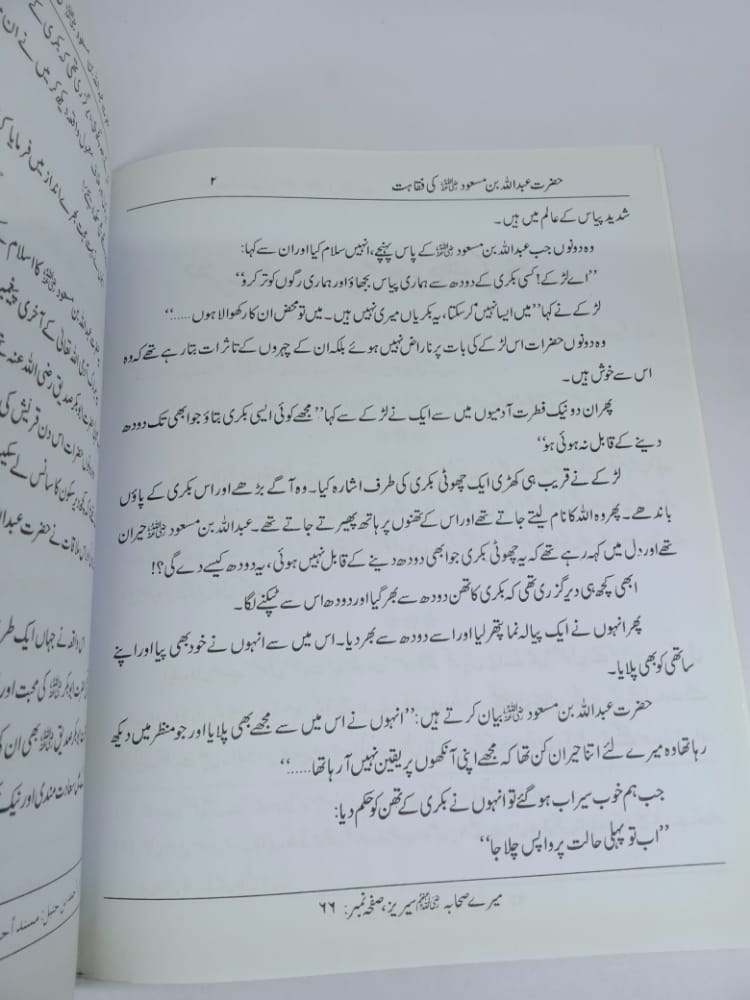 حضرت عبداللہ بن مسعود رضی اللہ عنہ کی فقاہت ۲
شدید پیاس کے عالم میں ہیں۔
وہ دونوں جب عبداللہ بن مسعود رضی اللہ عنہ کے پاس پہنچے، انہیں سلام کیا اور ان سے کہا:
”اے لڑکے! کسی بکری کے دودھ سے ہماری پیاس بجھاؤ اور ہماری رگوں کو تر کرو“
لڑکے نے کہا ”میں ایسا نہیں کر سکتا، یہ بکریاں میری نہیں ہیں۔ میں تو محض ان کا رکھوالا ہوں......“
وہ دونوں حضرات اس لڑکے کی بات پر ناراض نہیں ہوئے بلکہ ان کے چہروں کے تاثرات بتا رہے تھے کہ وہ
اس سے خوش ہیں۔
پھر ان دو نیک فطرت آدمیوں میں سے ایک نے لڑکے سے کہا ”مجھے کوئی ایسی بکری بتاؤ جو ابھی تک دودھ
دینے کے قابل نہ ہوئی ہو“
لڑکے نے قریب ہی کھڑی ایک چھوٹی بکری کی طرف اشارہ کیا۔ وہ آگے بڑھے اور اس بکری کے پاؤں
باندھے۔ پھر وہ اللہ کا نام لیتے جاتے تھے اور اس کے تھنوں پر ہاتھ پھیرتے جاتے تھے۔ عبداللہ بن مسعود رضی اللہ عنہ حیران
تھے اور دل میں کہہ رہے تھے کہ یہ چھوٹی بکری جو ابھی دودھ دینے کے قابل نہیں ہوئی، یہ دودھ کیسے دے گی؟!
ابھی کچھ ہی دیر گزری تھی کہ بکری کا تھن دودھ سے بھر گیا اور دودھ اس سے ٹپکنے لگا۔
پھر انہوں نے ایک پیالہ نما پتھر لیا اور اسے دودھ سے بھر دیا۔ اس میں سے انہوں نے خود بھی پیا اور اپنے
ساتھی کو بھی پلایا۔
حضرت عبداللہ بن مسعود رضی اللہ عنہ بیان کرتے ہیں: ”انہوں نے اس میں سے مجھے بھی پلایا اور جو منظر میں دیکھ
رہا تھا وہ میرے لئے اتنا حیران کن تھا کہ مجھے اپنی آنکھوں پر یقین نہیں آ رہا تھا......“
جب ہم خوب سیراب ہو گئے تو انہوں نے بکری کے تھن کو حکم دیا:
”اب تو پہلی حالت پر واپس چلا جا“
میرے صحابہ رضی اللہ عنہم سیریز، صفحہ نمبر: ۶۶